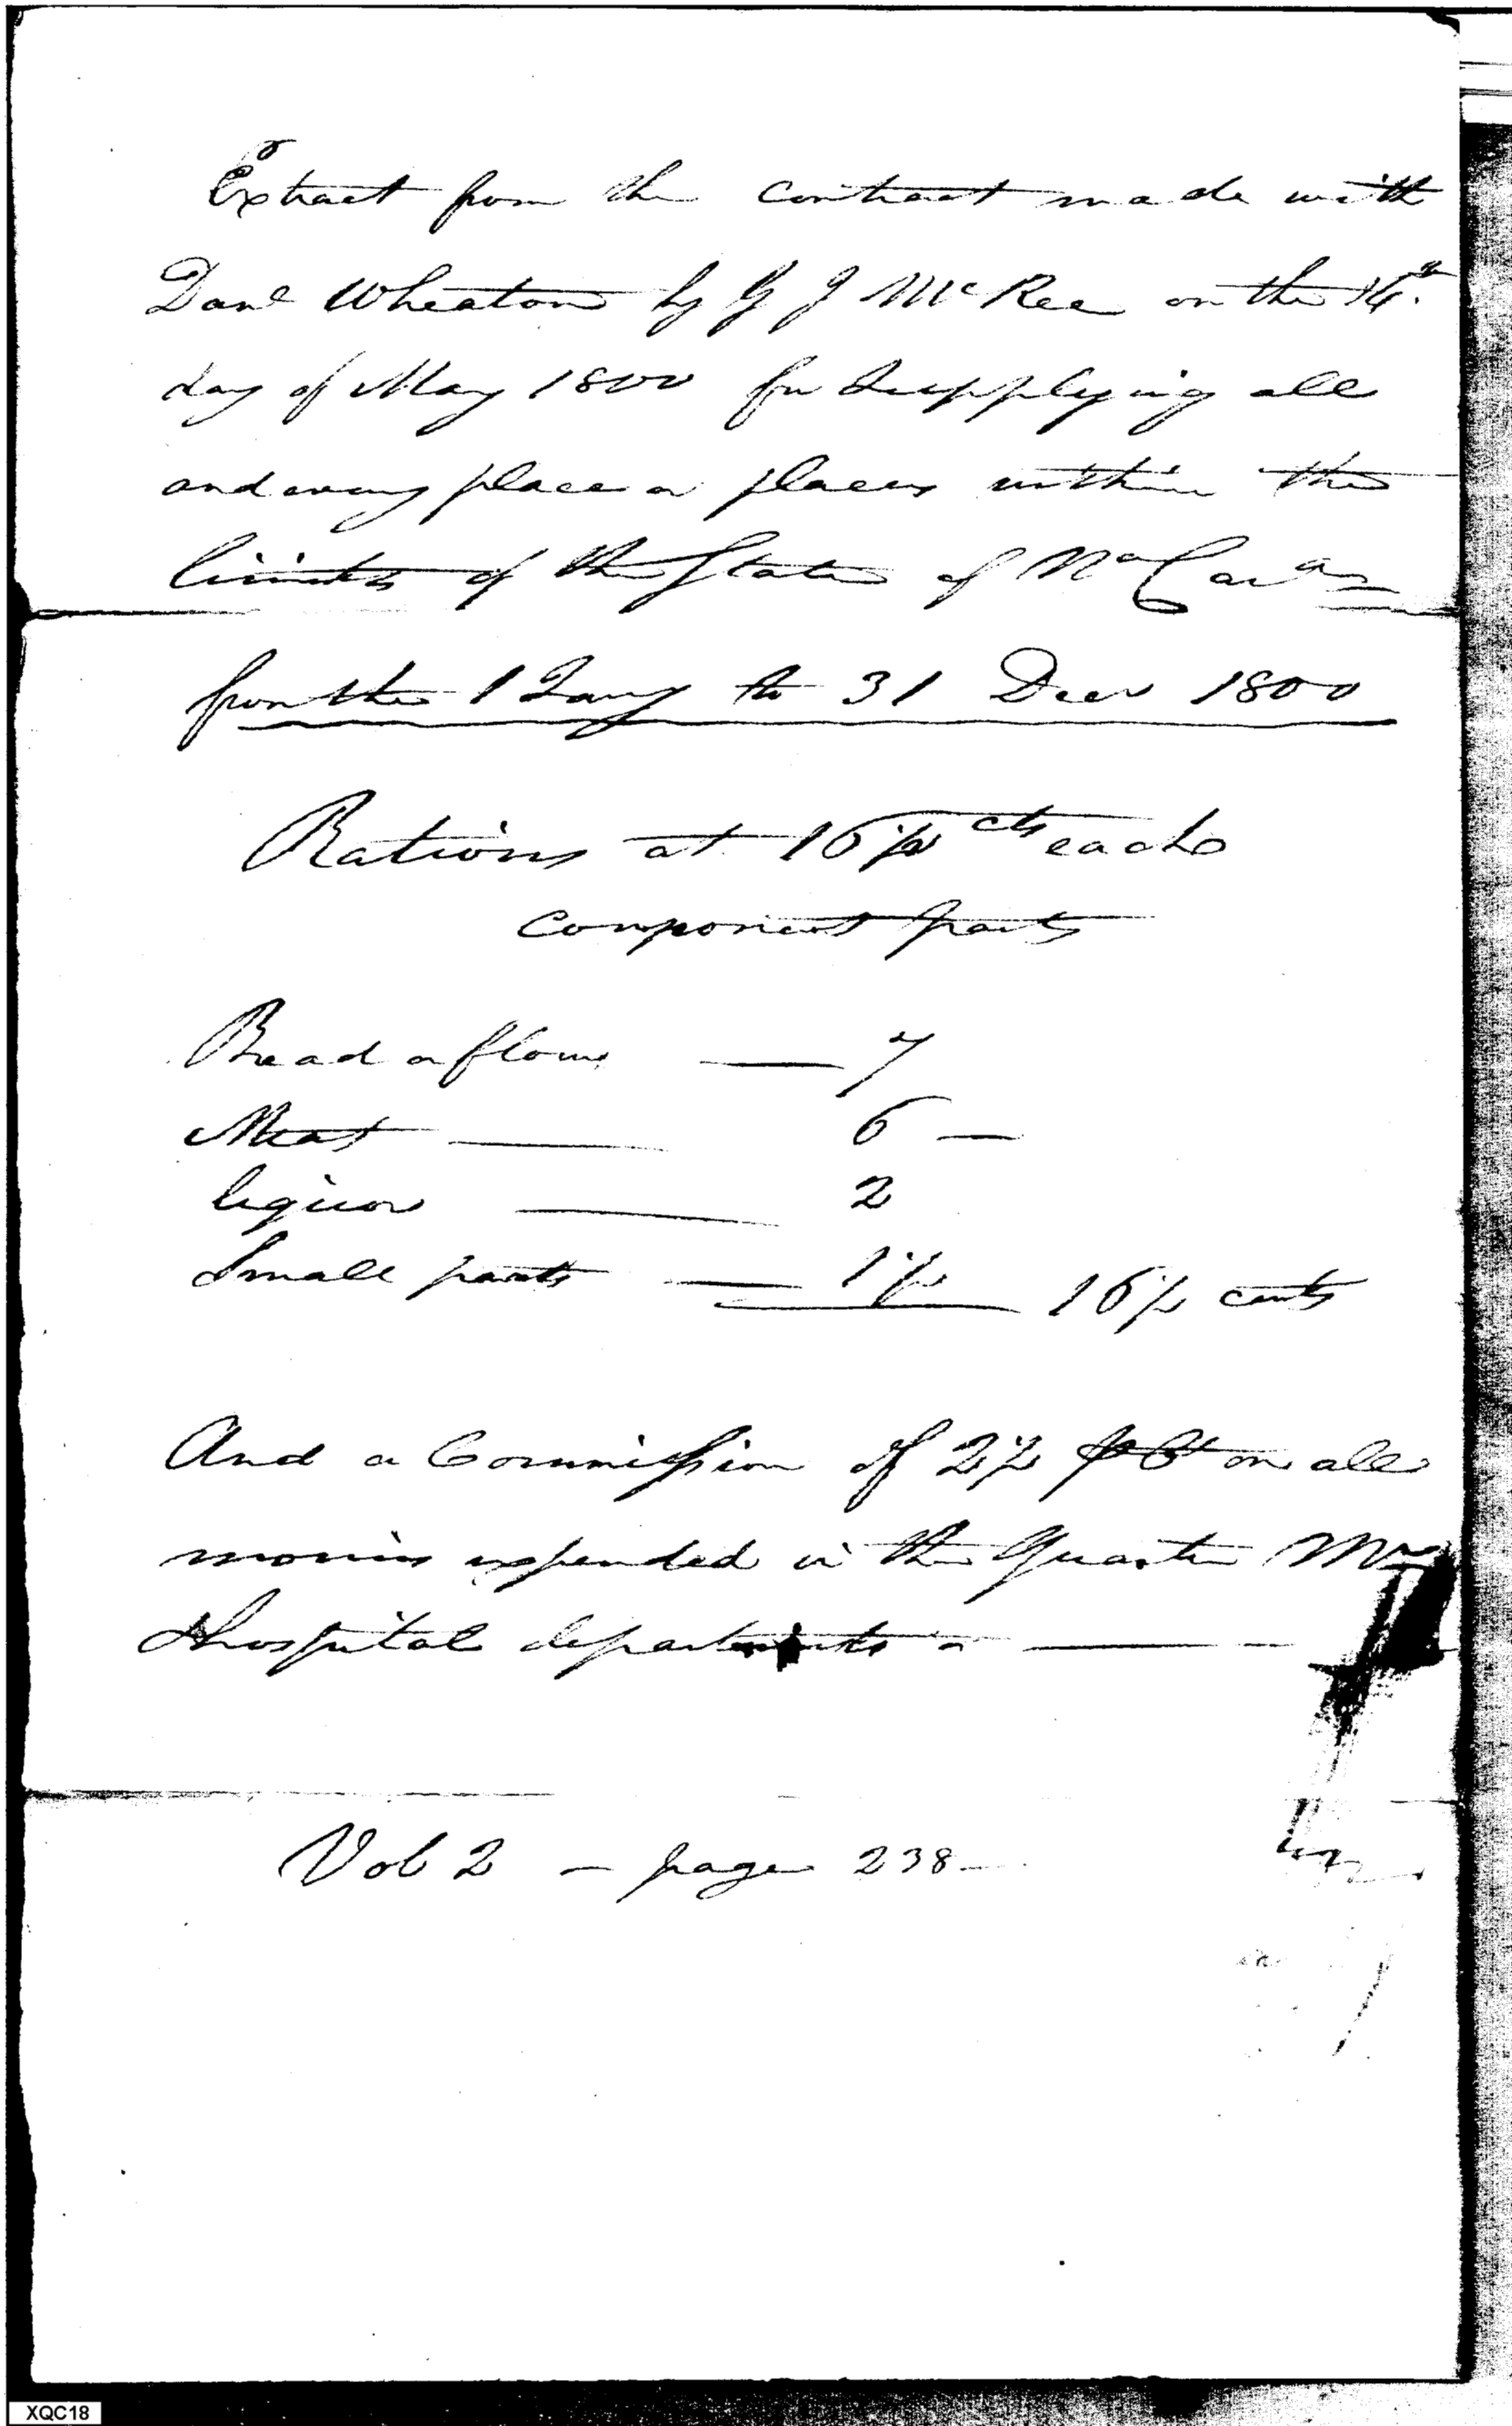 Extract from the contract made with
Danl Wheaton by G J McRee on the 16th
day of May 1800 for Supplying all
and every place or places within the
limits of the State of No Cara
from the 1 Jany to 31 Decr 1800
Rations at 16 1/2 cts each
component parts
Bread or flour — 7
Meat — 6 —
liquor — 2
Small parts — 1 1/2 16 1/2 cents
And a Commission of 2 1/2 on all
monies expended in the Quarter Mr
Hospital departments —
Vol 2 — page 238 —
XQC18